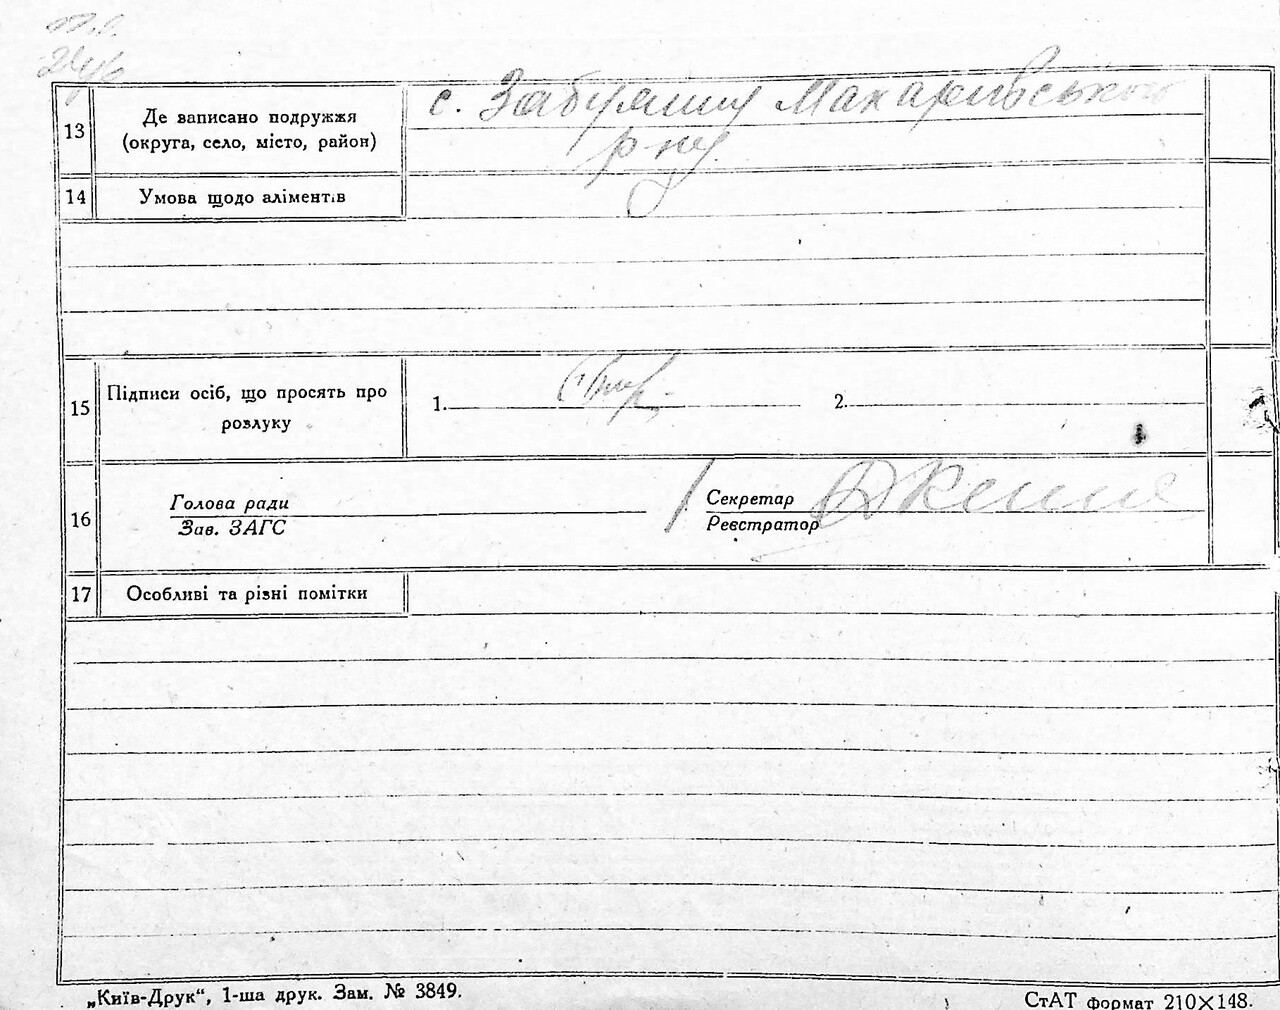 13
Де записано подружжя
(округа, село, місто, район)
с. Забуянну Макарівського
р-ну
14
Умова щодо аліментів
15
Підписи осіб, що просять про
розлуку
1.
2.
16
Голова ради
Зав. ЗАГС
Секретар
Реєстратор
17
Особливі та різні помітки
„Київ-Друк“, 1-ша друк. Зам. № 3849.
СтАТ формат 210×148.